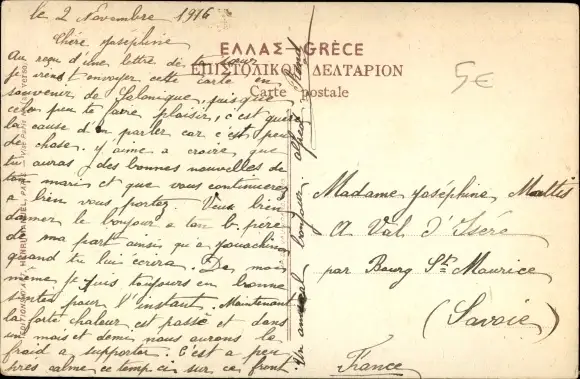 le 2 Novembre 1916
Chère Joséphine
Au reçu d'une lettre de ta sœur
je viens t'envoyer cette carte en
souvenir de Salonique, puisque
cela peu te faire plaisir, c'est guère
la cause d'en parler car c'est peu
de chose. j'aime a croire que
tu auras des bonnes nouvelles de
ton mari et que vous continuerez
a bien vous porter. Veux bien
donner le bonjour a ton b. père
de ma part ainsi qu'a
quand tu lui écrira. De moi
même je suis toujours en bonne
santée pour l'instant. Maintenant
la forte chaleur est passé et dans
un mois et demi nous aurons le
froid a supporter. C'est a peu
près calme ce temp ci sur ce front.
Un amical bonjour. alfred
ΕΛΛΑΣ-GRÈCE
ΕΠΙΣΤΟΛΙΚΟΝ ΔΕΛΤΑΡΙΟΝ
Carte postale
5€
Madame Joséphine Mattis
A Val d'Isére
par Bourg St Maurice
(Savoie)
France